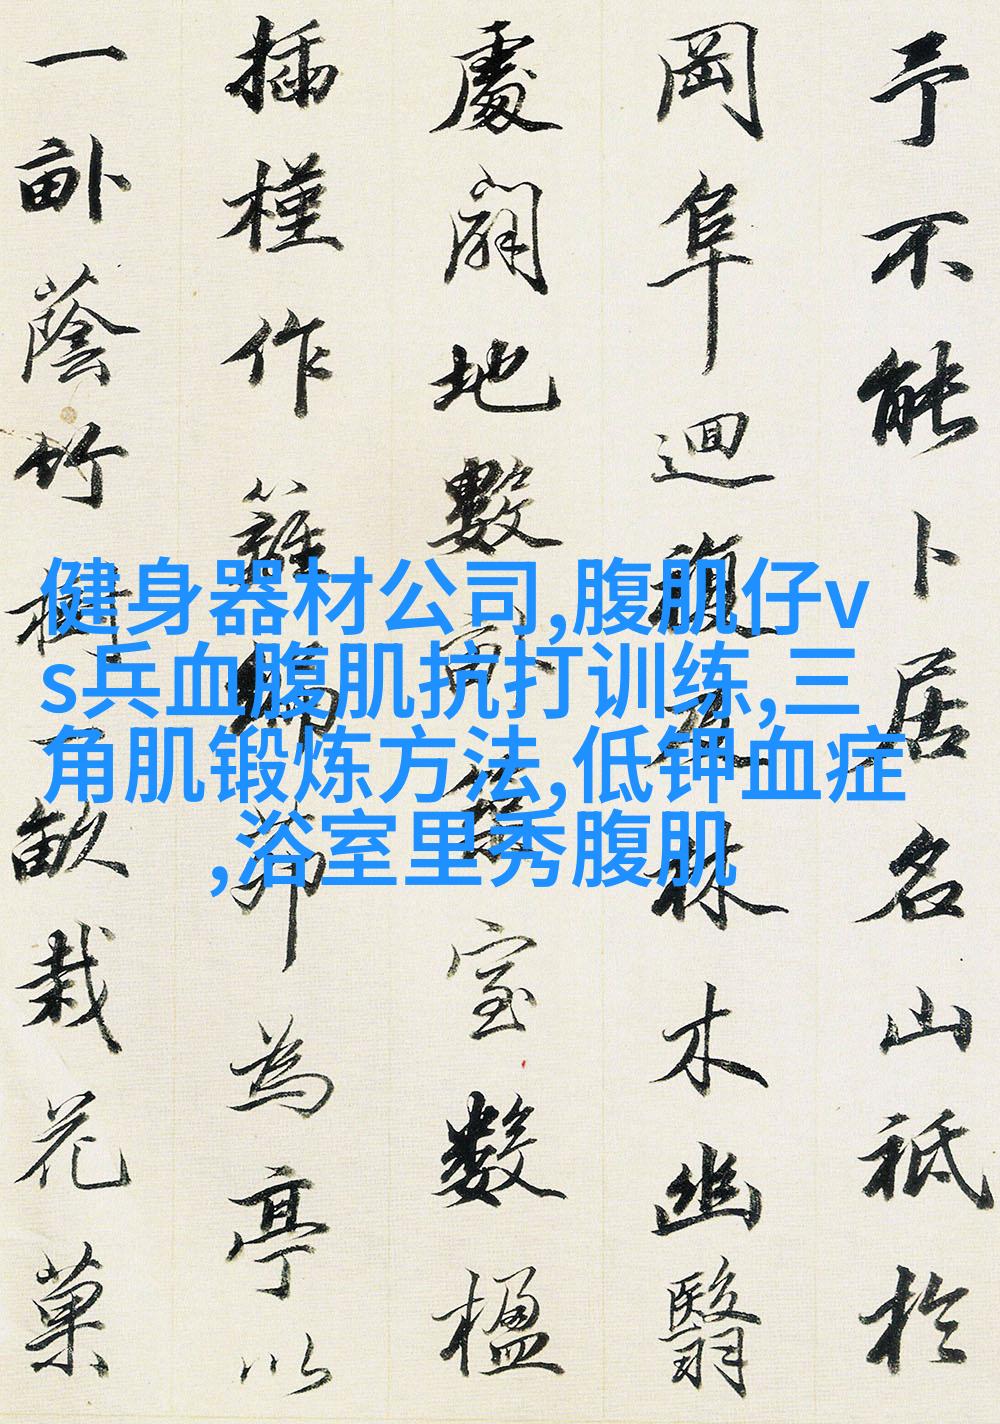 予不能卜居名山祗於
岡阜迴複及林木幽翳
處闢地數畝築室數楹
插槿作籬編茆為亭以
一畝蔭竹樹一畝栽花菓
健身器材公司,腹肌仔v
s兵血腹肌抗打训练,三
角肌锻炼方法,低钾血症
,浴室里秀腹肌